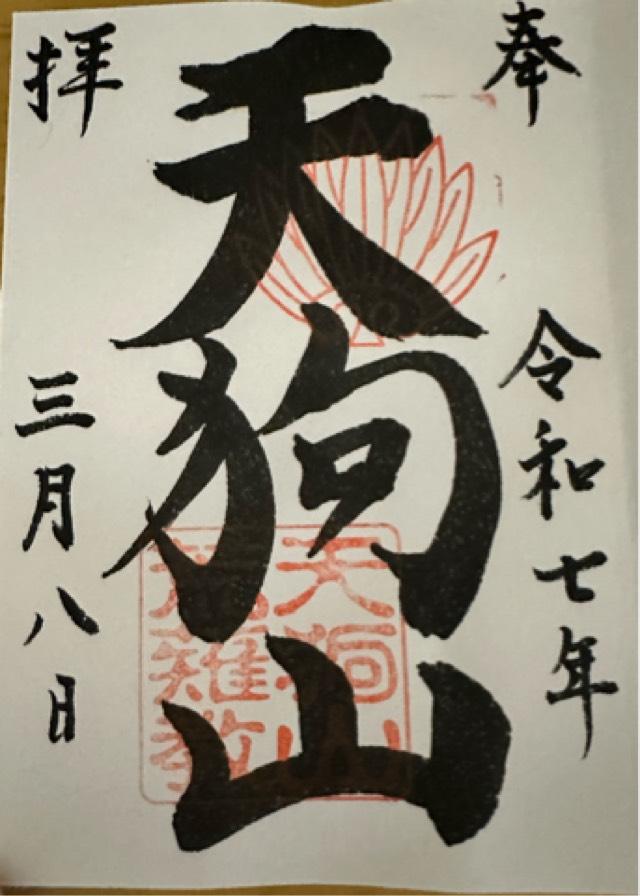 奉
拝
天狗山
令和七年
三月八日
天狗山